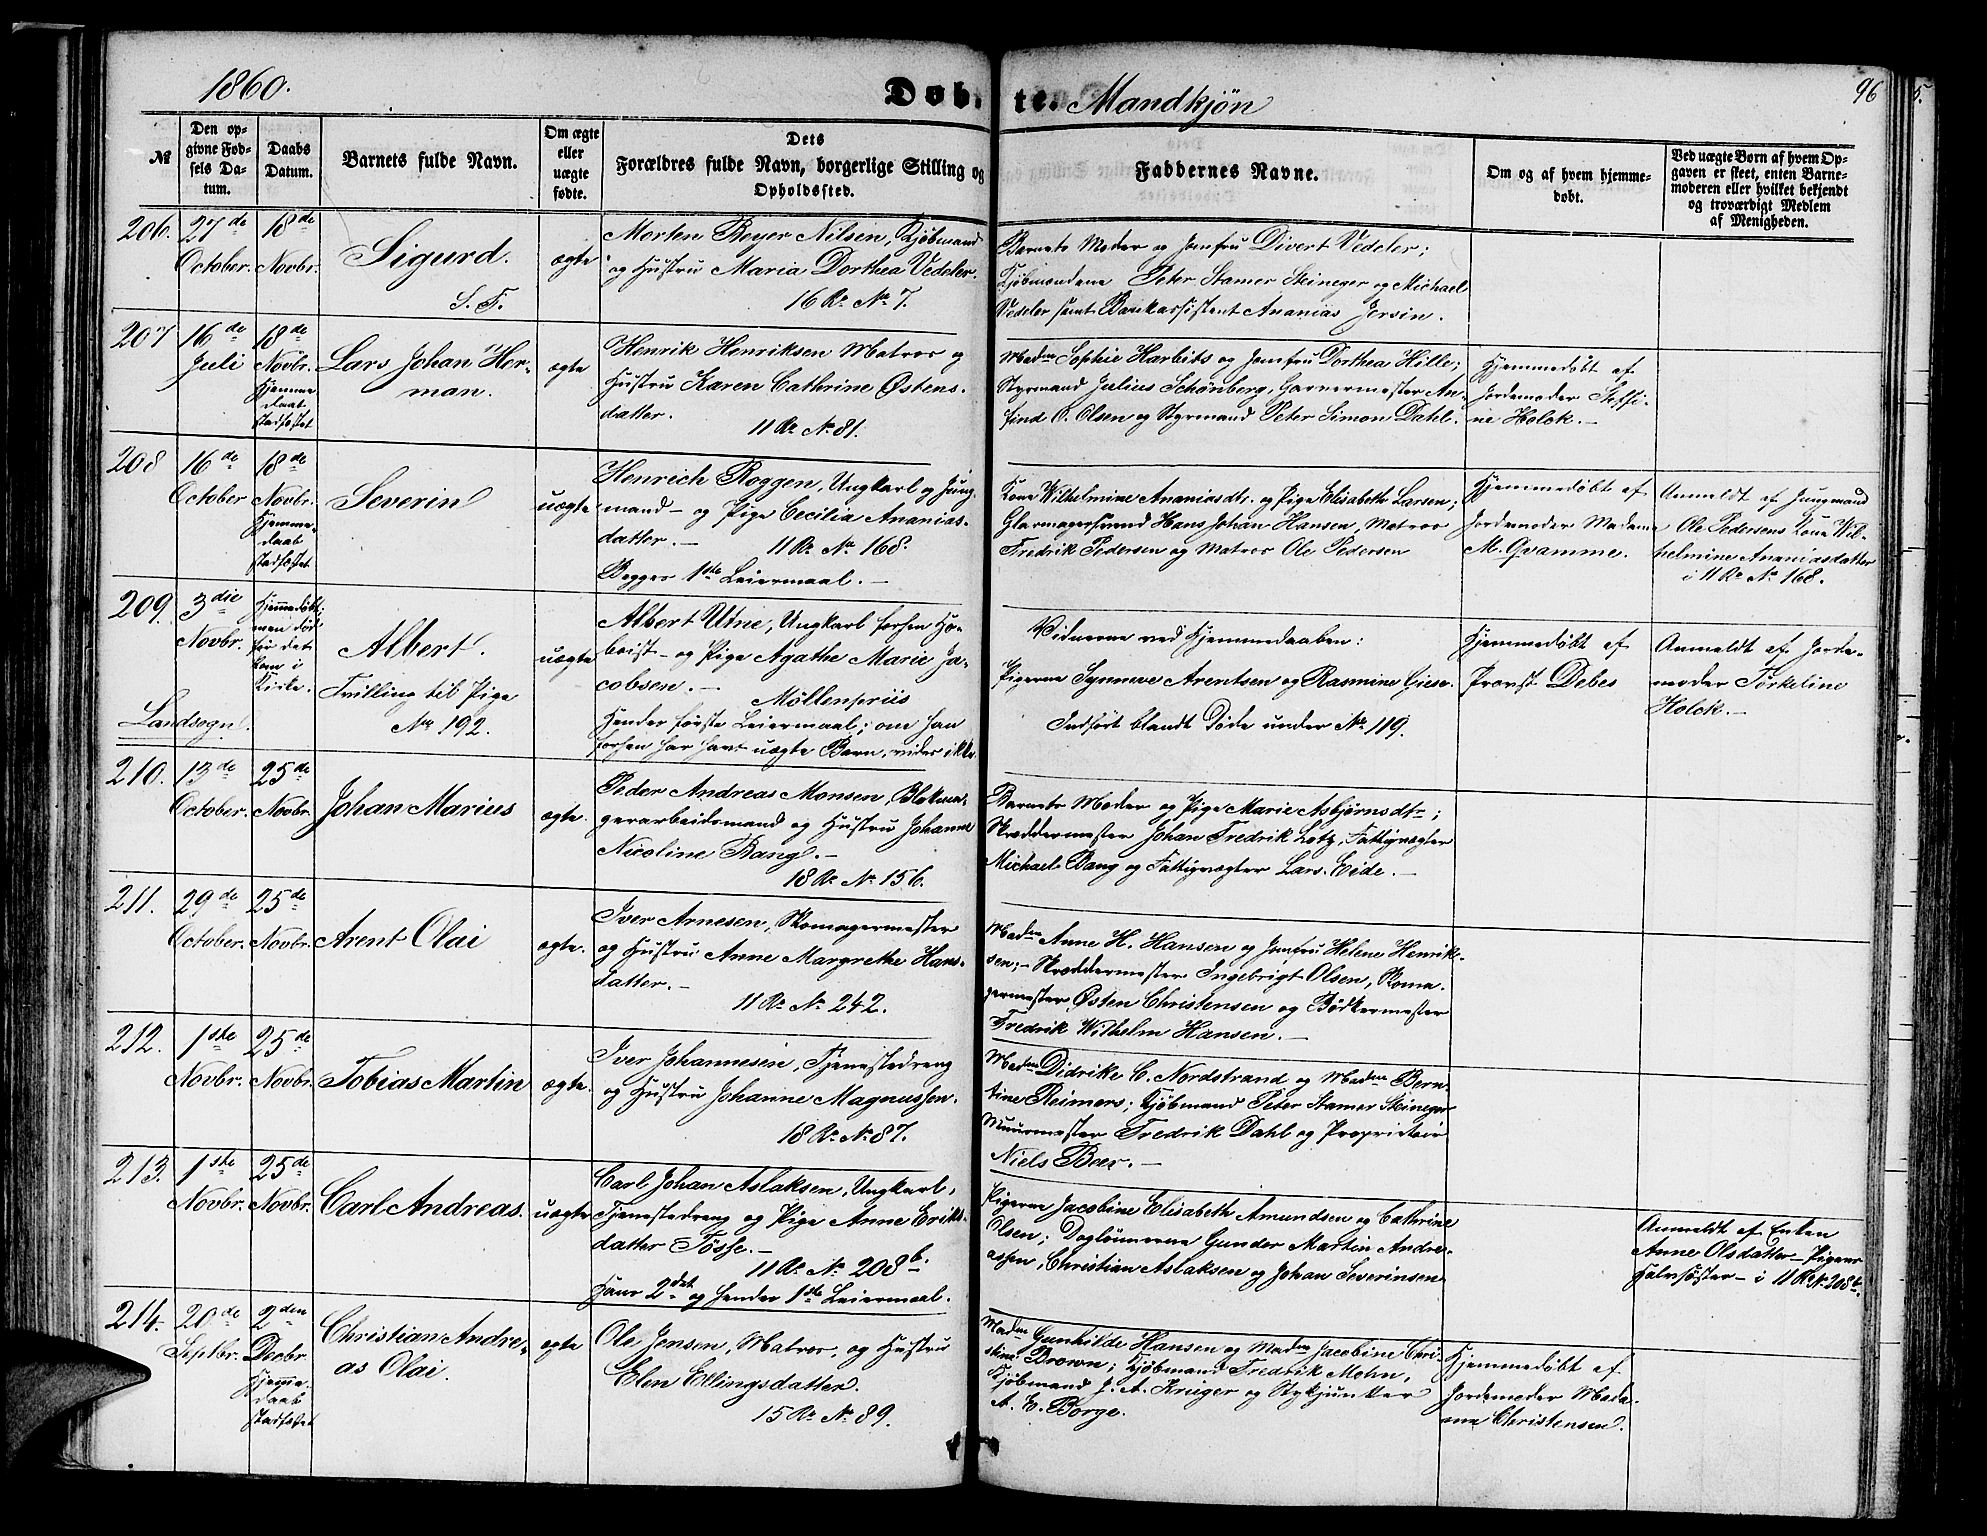 1860.
Døbte. Mandkjøn
96
№
Den opgivne Fødsels Datum.
Daabs Datum.
Barnets fulde Navn.
Om ægte eller uægte fødte.
Dets Forældres fulde Navn, borgerlige Stilling og Opholdssted.
Faddernes Navne.
Om og af hvem hjemmedøbt.
Ved uægte Børn af hvem Opgaven er skeet, enten Barnemoderen eller hvilket bekjendt og troværdigt Medlem af Menigheden.
206.
27de October.
18de Novbr.
Sigurd.
S. F.
ægte
Morten Beyer Nilsen, Kjøbmand
og Hustru Maria Dorthea Vedeler.
16 R. No 7.
Barnets Moder og Jomfru Divert Vedeler;
Kjøbmændene Peter Stamer Steineger og Michael
Vedeler samt Bankassistent Ananias Jersin.
207
16de Juli
18de Novbr.
Hjemmedaab stadfæstet
Lars Johan Her-
man.
ægte
Henrik Henriksen Matros og
Hustru Karen Cathrine Østens-
datter.
11 R. No 81.
Madme Sophie Harbits og Jomfru Dorthea Hille;
Styrmand Julius Schønberg, Garvermester An-
find O. Olsen og Styrmand Peter Simon Dahl.
Hjemmedøbt af
Jordemoder Steffi-
ne Holck.-
208
16de October
18de Novbr.
Hjemmedaab stadfæstet
Severin
uægte
Henrich Roggen, Ungkarl og Jung-
mand- og Pige Cecilia Ananias-
datter.-
11 R. No 168.
Begges 1ste Leiermaal.-
Kone Wilhelmine Ananiasdtr. og Pige Elisabeth Larsen;
Glarmagersvend Hans Johan Hansen, Matros
Fredrik Pedersen og Matros Ole Pedersen
Hjemmedøbt af
Jordemoder Madame
M. Qvamme.
Anmeldt af Jungmand
Ole Pedersens Kone Wil-
helmine Ananiasdatter
i 11 R. No 168.
209.
3die Novbr.
Hjemmedøbt;
men død
før det
kom i
Kirke.
Landsogn.
Albert.
Tvilling til Pige
No 192.
uægte
Albert Utne, Ungkarl forhen Ho-
boist- og Pige Agathe Marie Ja-
cobsen.-
Möllenpriis
Hendes første Leiermaal; om han
forhen har havt uægte Barn, vides ikke.
Vidnerne ved Hjemmedaaben:
Pigerne Synneve Arentsen og Rasmine Giese.
Indført blandt Døde under No 119.
Hjemmedøbt af
Provst Debes
Anmeldt af Jorde-
moder Torkeline
Holck.-
210.
13de October.
25de Novbr.
Johan Marius
ægte.
Peder Andreas Monsen, Blokma-
gerarbeidsmand og Hustru Johanne
Nicoline Bang.-
18 R. No 156.
Barnets Moder og Pige Marie Asbjørnsdtr;
Skræddermester Johan Fredrik Lotz, Fattigvægter
Michael Bang og Fattigvægter Lars Eide.-
211.
29de October.
25de Novbr.
Arent Olai
ægte.
Iver Arnesen, Skomagermester
og Hustru Anne Margrethe Hans-
datter.-
11 R. No 242.
Madme Anne H. Hansen og Jomfru Helene Henrik-
sen;- Skræddermester Ingebrigt Olsen, Skoma-
germester Østen Christensen og Bødkermester
Fredrik Wilhelm Hansen.-
212.
1ste Novbr.
25de Novbr.
Tobias Martin
ægte.
Iver Johannesen, Tjenestedreng
og Hustru Johanne Magnussen.
18 R. No 87.
Madme Didrike C. Nordstrand og Madme Bern-
tine Reimers; Kjøbmand Peter Stamer Steineger
Muurmester Fredrik Dahl og Proprietair
Niels Boer.-
213.
1ste Novbr.
25de Novbr.
Carl Andreas.
uægte
Carl Johan Aslaksen, Ungkarl,
Tjenestedreng og Pige Anne Eriks-
datter Tøsse.-
11 R. No 208b.
Hans 2det og hendes 1ste Leiermaal.
Pigerne Jacobine Elisabeth Amundsen og Cathrine
Olsen; Dagløunerne Gunder Martin Andre-
assen, Christian Aslaksen og Johan Severinsen
Anmeldt af Enken
Anne Olsdatter- Pigens
Halvsøster- i 11 R. No 208b.
214.
20de Septbr.
2den Decbr.
Hjemmedaab stadfæstet
Christian Andre-
as Olai.
ægte
Ole Jensen, Matros, og Hustru
Elen Ellingsdatter.
15 R. No 89.
Madme Gunhilde Hansen og Madme Jacobine Chri-
stine Brown; Kjøbmand Fredrik Mohn,
Kjøbmand J. A. Krüger og Stykjunker
A. E. Borge.
Hjemmedøbt af
Jordemoder Mada-
me Christensen.